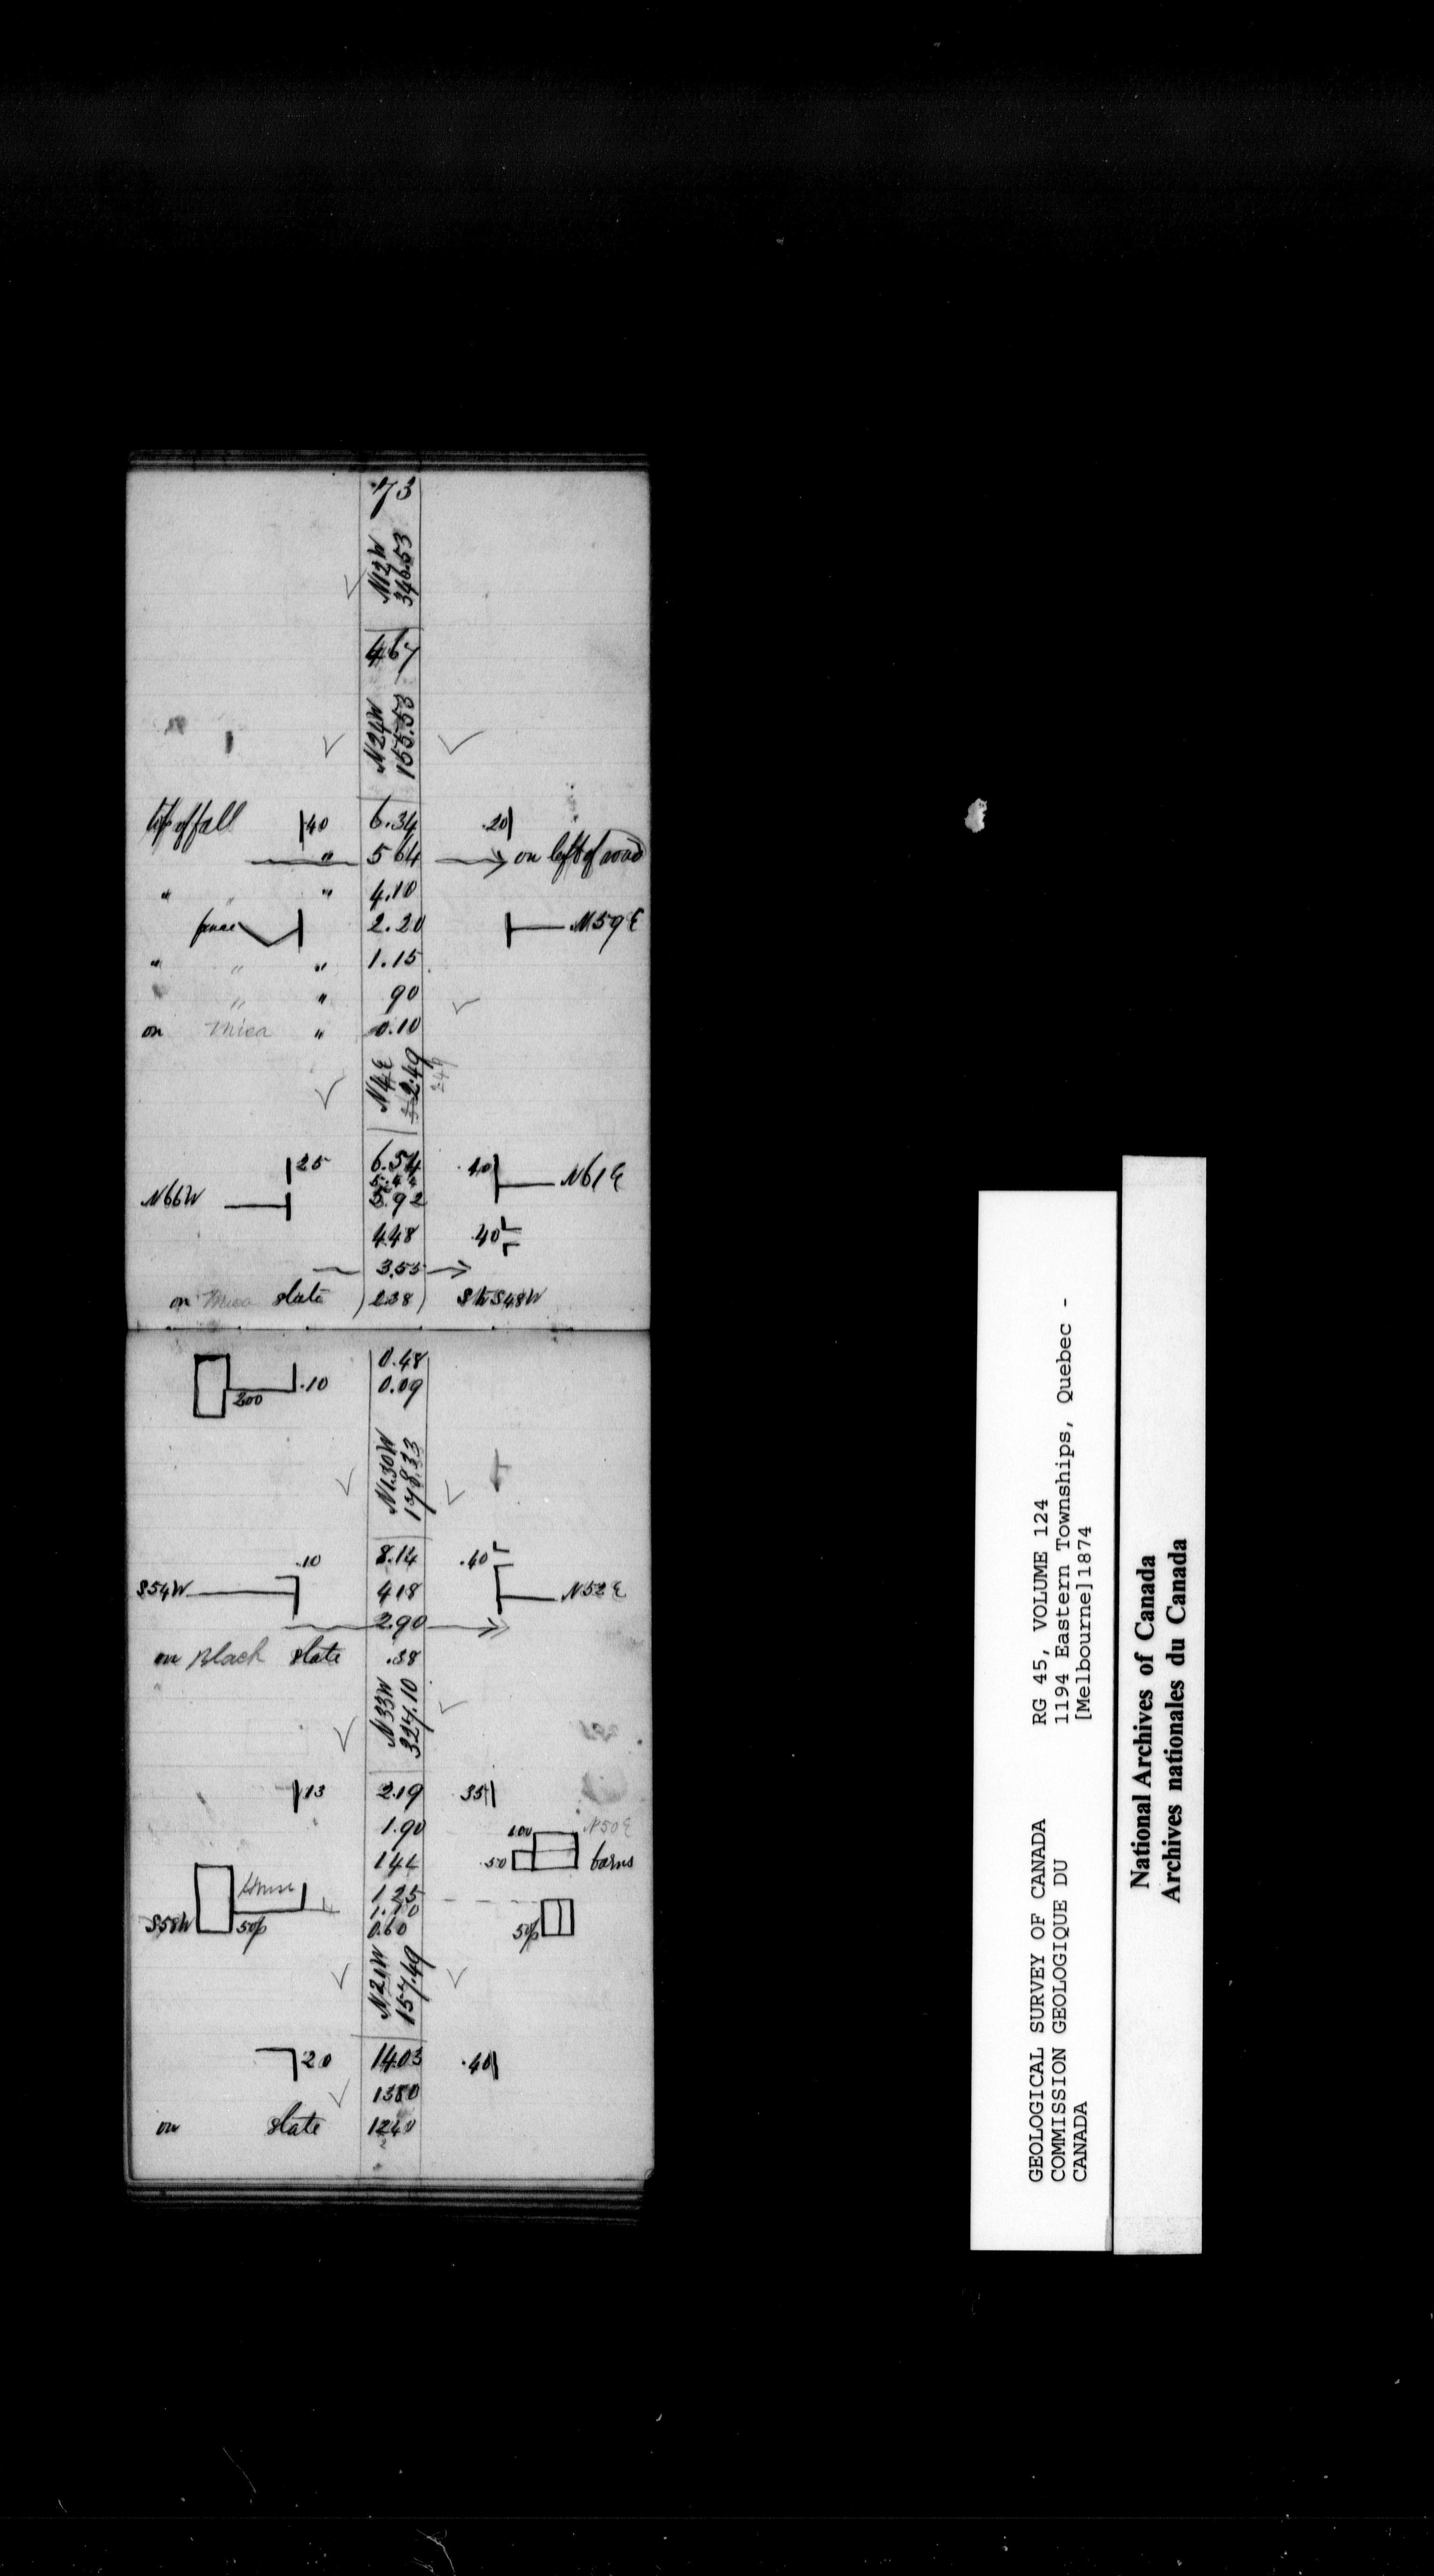 .73
N12W
346.53
467
N24W
155.53
top of fall 40 6.34 .20
" 564 on left of road
" " " 4.10
fence 2.20 N59E
" " " 1.15
" " 90
on Mica " 0.10
N4E
2.49
249
25 6.54 .40 N61E
N66W 5.92
448 .40
3.55
on Mica slate 238 S48W
0.48
.10 0.09
200
N1.30W
178.33
.10 8.14 .40
S54W 418 N52E
2.90
on Black slate .38
N33W
327.10
13 2.19 35
1.90 100 N50E
144 .50 barns
House 1.25
1.10
S58W 50p 0.60 50p
N21W
157.49
20 1403 .40
1380
on slate 1240
GEOLOGICAL SURVEY OF CANADA
COMMISSION GEOLOGIQUE DU
CANADA
RG 45, VOLUME 124
1194 Eastern Townships, Quebec -
[Melbourne]1874
National Archives of Canada
Archives nationales du Canada